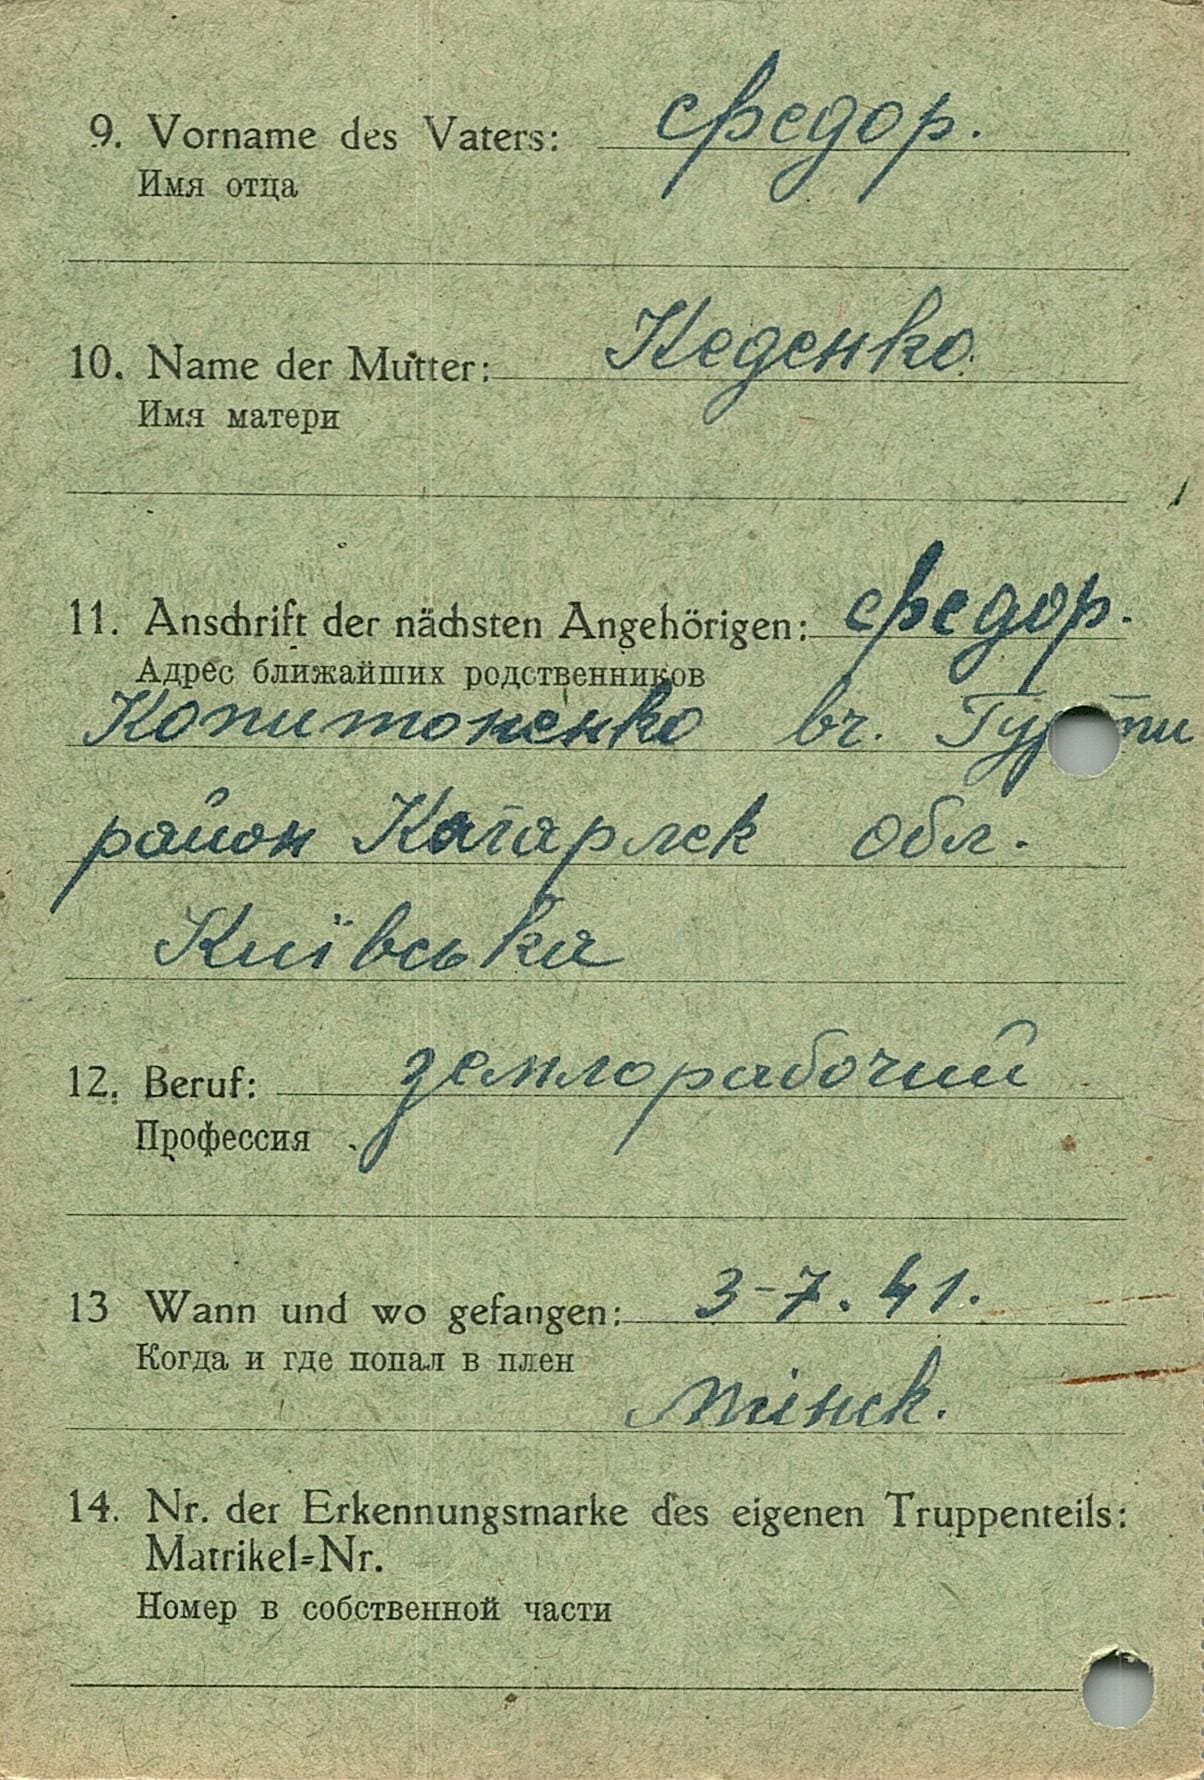 9. Vorname des Vaters: Федор.
Имя отца
10. Name der Mutter: Кеденко.
Имя матери
11. Anschrift der nächsten Angehörigen: Федор.
Адрес ближайших родственников
Копитоненко вч.
район Кагарлек обл.
Київська
12. Beruf: землорабочий
Профессия
13 Wann und wo gefangen: 3-7.41.
Когда и где попал в плен
Мінск.
14. Nr. der Erkennungsmarke des eigenen Truppenteils:
Matrikel=Nr.
Номер в собственной части